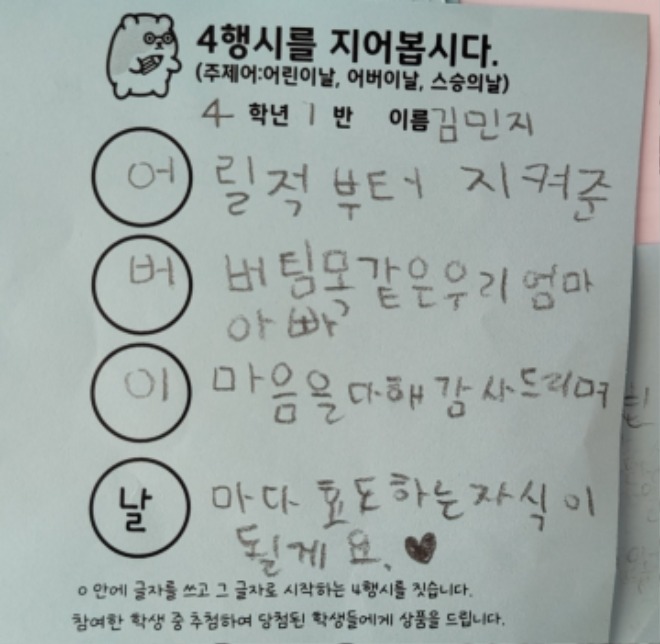 4행시를 지어봅시다.
(주제어:어린이날, 어버이날, 스승의날)
4 학년 1 반 이름 김민지
어 릴적 부터 지켜준
버 버팀목같은우리 엄마
아빠
이 마음을 다해 감사드리며
날 마다 효도하는자식이
될게요. ♥
o 안에 글자를 쓰고 그 글자로 시작하는 4행시를 짓습니다.
참여한 학생 중 추첨하여 당첨된 학생들에게 상품을 드립니다.